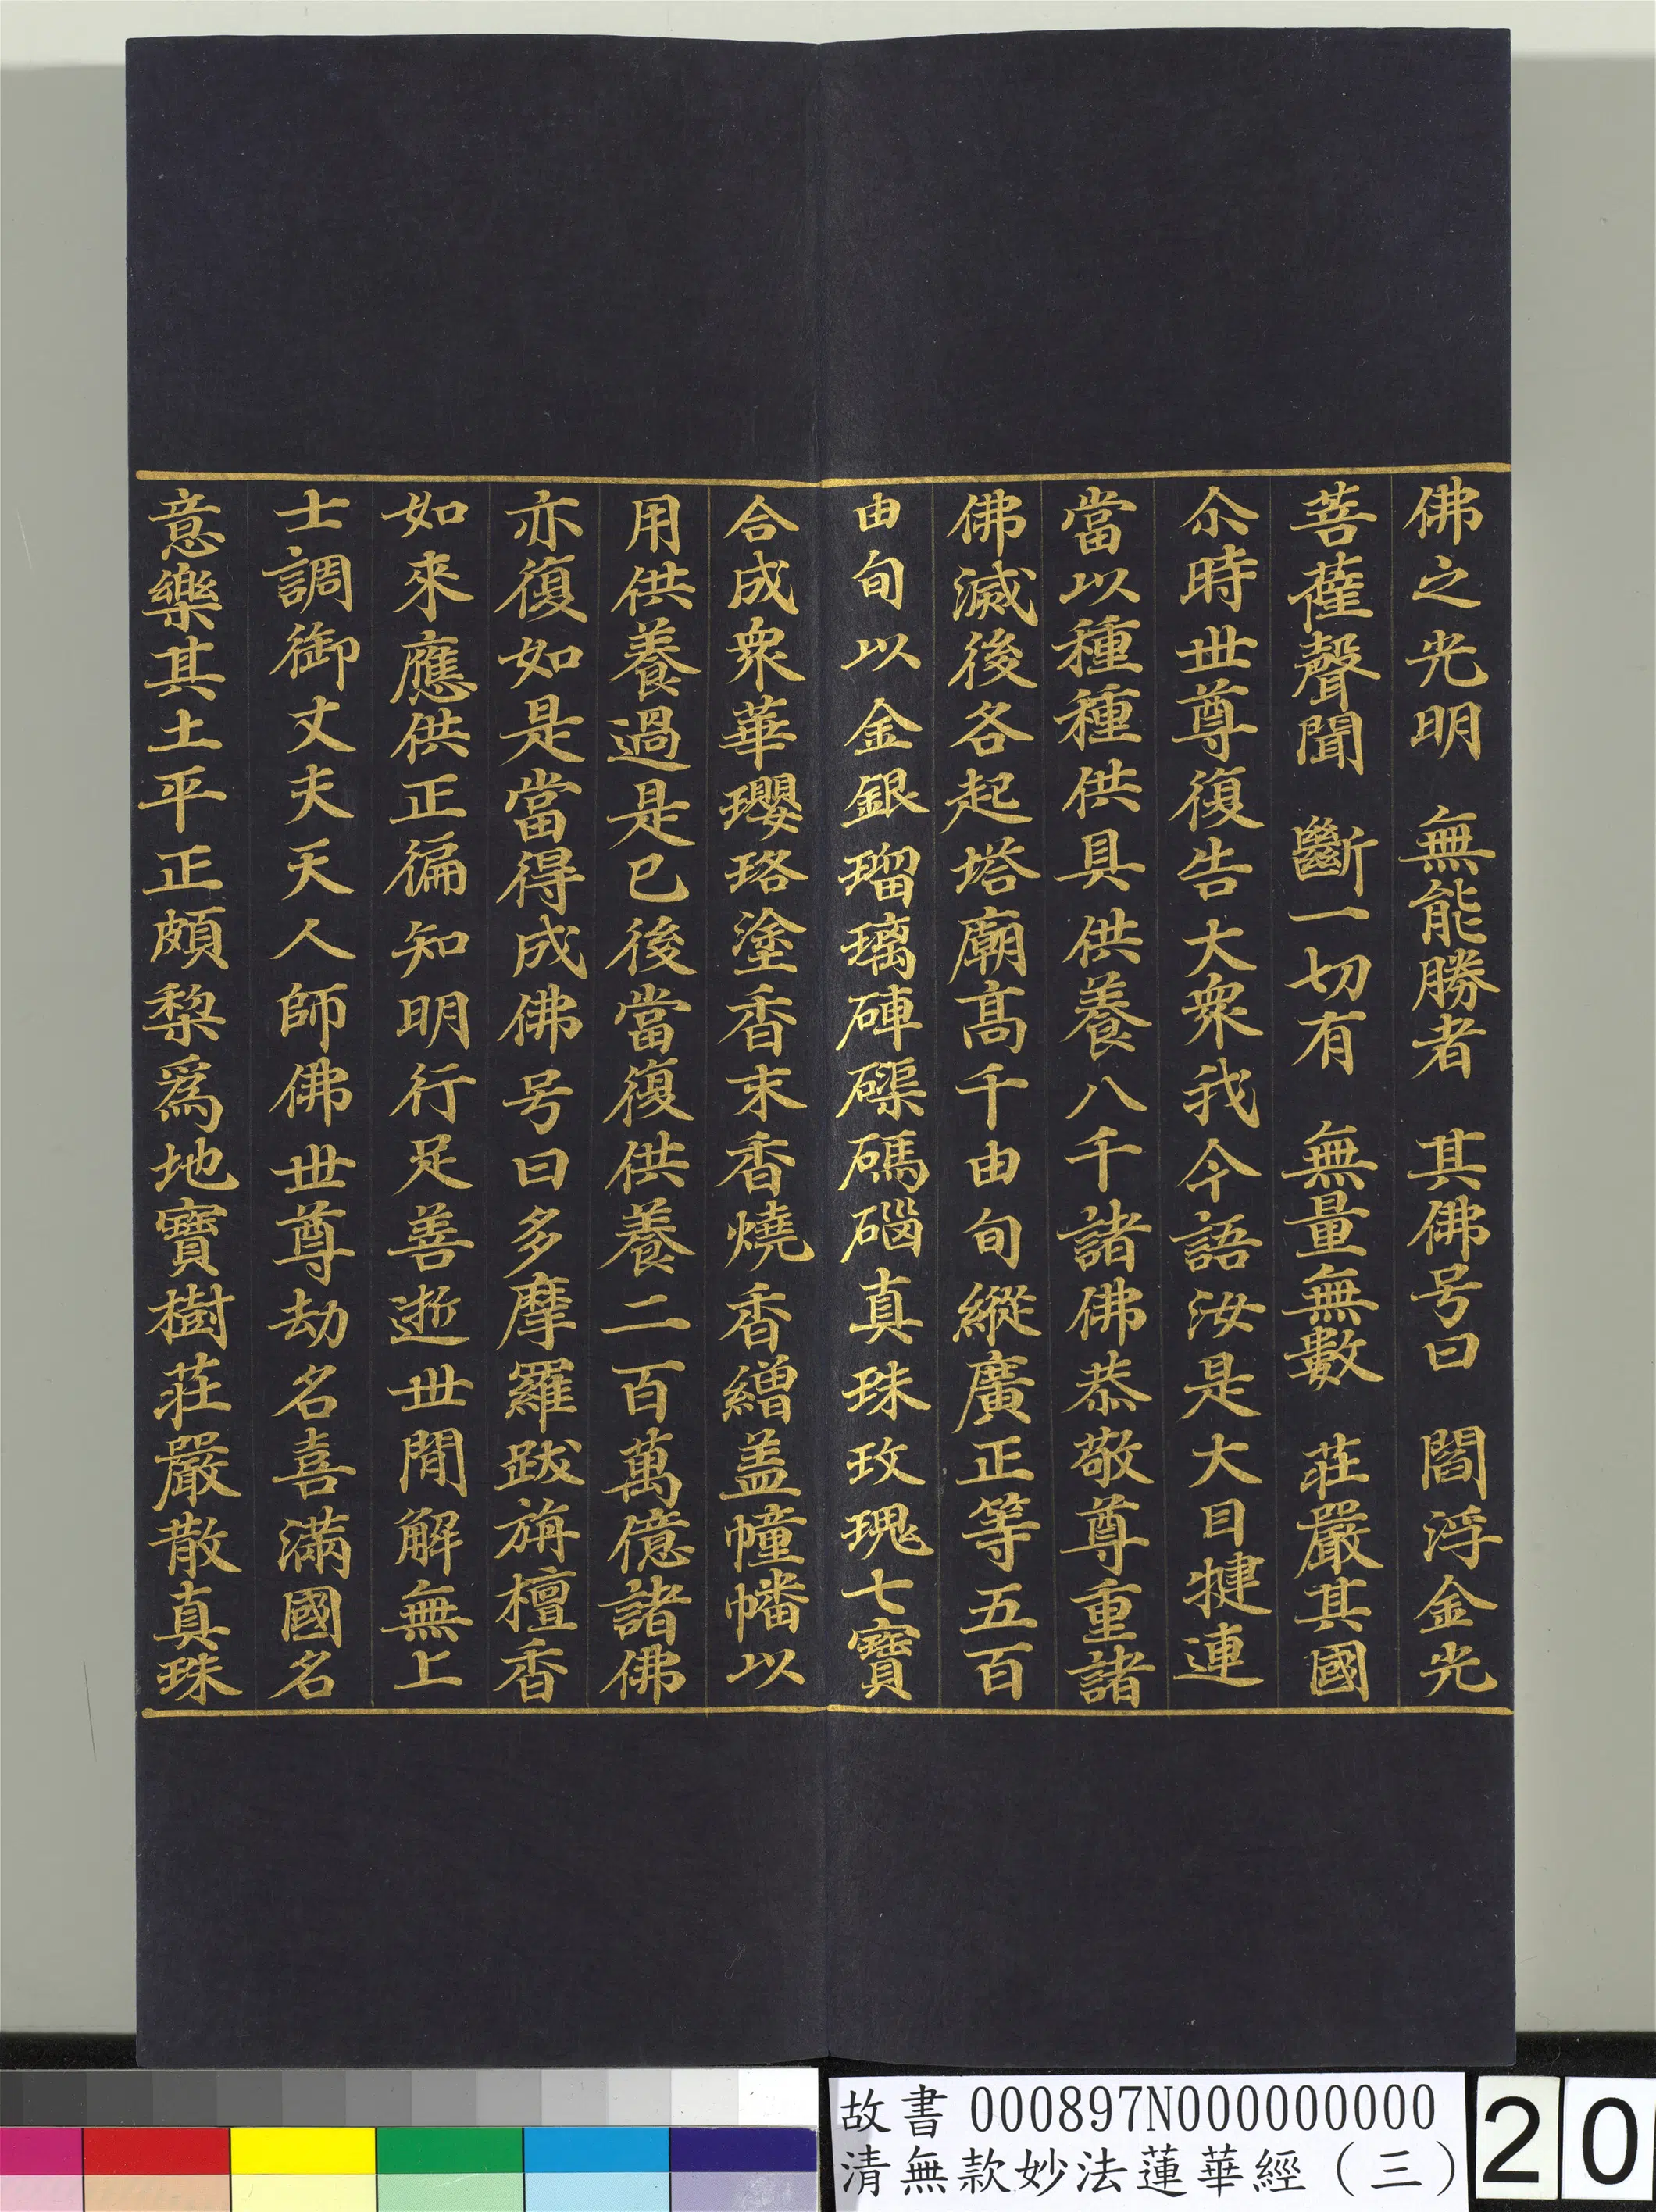 佛之光明　無能勝者　其佛号曰　閻浮金光
菩薩聲聞　斷一切有　無量無數　莊嚴其國
尒時世尊復告大衆我今語汝是大目犍連
當以種種供具供養八千諸佛恭敬尊重諸
佛滅後各起塔廟髙千由旬縱廣正等五百
由旬以金銀瑠璃硨磲碼碯真珠玫瑰七寶
合成衆華瓔珞塗香末香燒香繒盖幢幡以
用供養過是已後當復供養二百萬億諸佛
亦復如是當得成佛号曰多摩羅跋旃檀香
如來應供正徧知明行足善逝世閒解無上
士調御丈夫天人師佛世尊劫名喜滿國名
意樂其土平正頗棃爲地寶樹莊嚴散真珠
故書 000897N000000000
清無款妙法蓮華經（三）
20